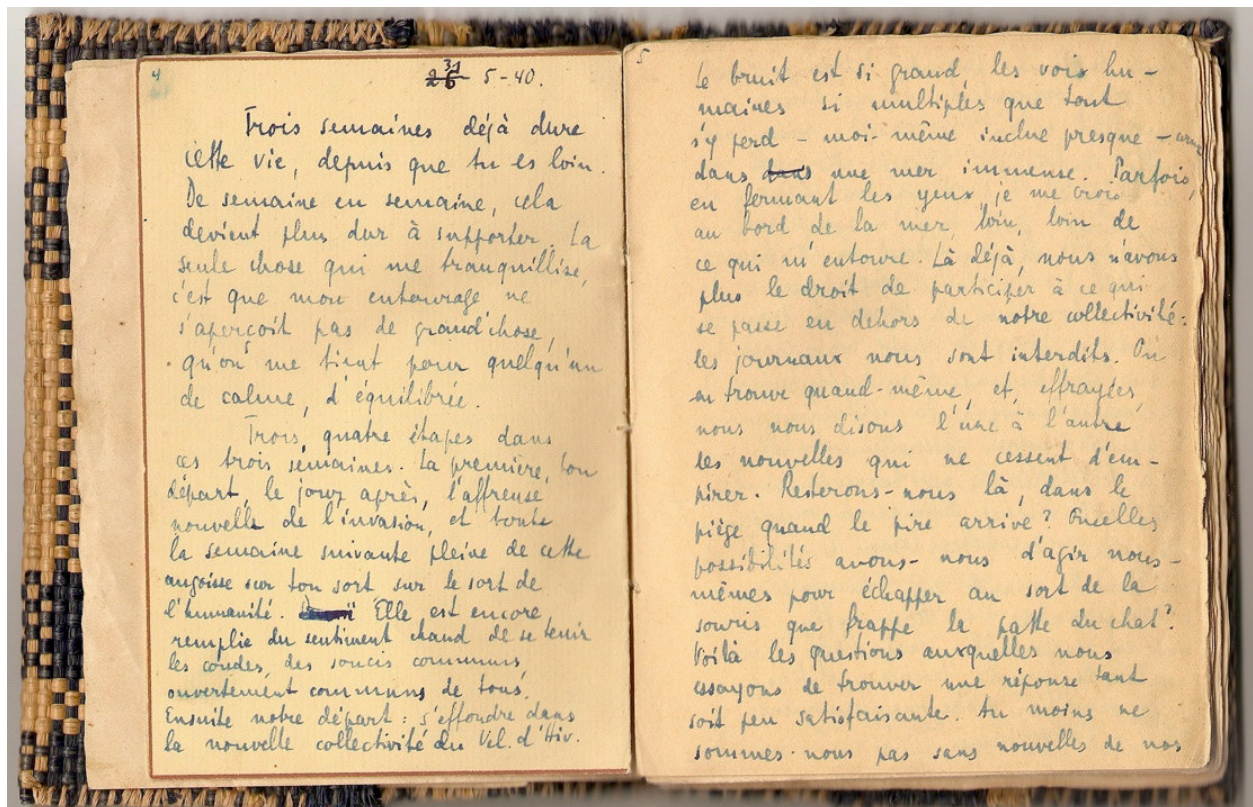 4
31 5-40.
Trois semaines déjà dure
cette vie, depuis que tu es loin.
De semaine en semaine, cela
devient plus dur à supporter. La
seule chose qui me tranquillise,
c'est que mon entourage ne
s'aperçoit pas de grand'chose,
qu'on me tient pour quelqu'un
de calme, d'équilibrée.
Trois, quatre étapes dans
ces trois semaines. La première, ton
départ, le jour après, l'affreuse
nouvelle de l'invasion, et toute
la semaine suivante pleine de cette
angoisse sur ton sort sur le sort de
l'humanité. Elle est encore
remplie du sentiment chaud de se tenir
les coudes, des soucis communs,
ouvertement communs de tous.
Ensuite notre départ : s'effondre dans
la nouvelle collectivité du Vel. d'Hiv.
5
Le bruit est si grand, les voix hu-
maines si multiples que tout
s'y perd - moi-même inclue presque -
dans une mer immense. Parfois,
en fermant les yeux, je me crois
au bord de la mer, loin, loin de
ce qui m'entoure. Là déjà, nous n'avons
plus le droit de participer à ce qui
se passe en dehors de notre collectivité :
les journaux nous sont interdits. On
en trouve quand-même, et, effrayées,
nous nous disons l'une à l'autre
les nouvelles qui ne cessent d'em-
pirer. Resterons-nous là, dans le
piège quand le pire arrive? Quelles
possibilités avons-nous d'agir nous-
mêmes pour échapper au sort de la
souris que frappe la patte du chat?
Voilà les questions auxquelles nous
essayons de trouver une réponse tant
soit peu satisfaisante. Au moins ne
sommes-nous pas sans nouvelles de nos